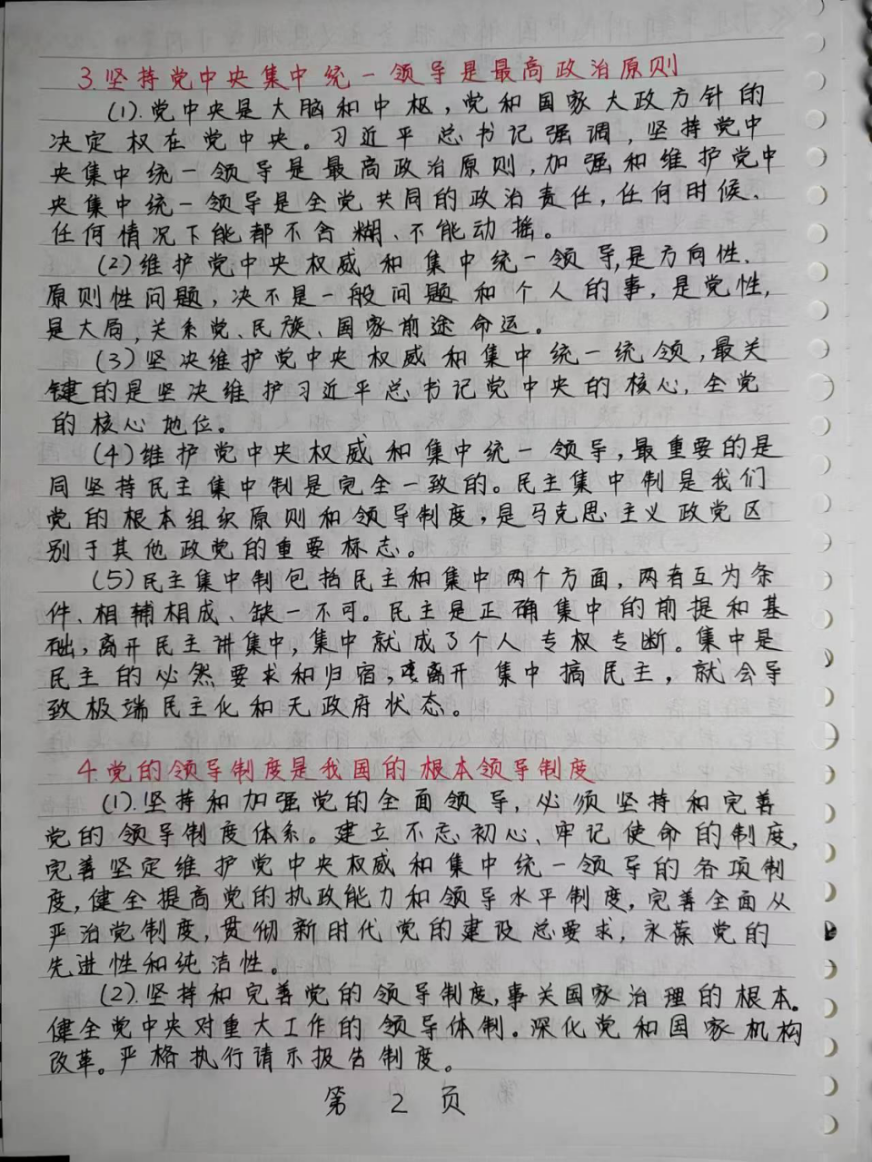 3.坚持党中央集中统一领导是最高政治原则
(1).党中央是大脑和中枢，党和国家大政方针的
决定权在党中央。习近平总书记强调，坚持党中
央集中统一领导是最高政治原则，加强和维护党中
央集中统一领导是全党共同的政治责任，任何时候、
任何情况下能都不含糊、不能动摇。
(2)维护党中央权威和集中统一领导,是方向性、
原则性问题，决不是一般问题和个人的事，是党性，
是大局，关系党、民族、国家前途命运。
(3)坚决维护党中央权威和集中统一统领，最关
键的是坚决维护习近平总书记党中央的核心，全党
的核心地位。
(4)维护党中央权威和集中统一领导，最重要的是
同坚持民主集中制是完全一致的。民主集中制是我们
党的根本组织原则和领导制度，是马克思主义政党区
别于其他政党的重要标志。
(5)民主集中制包括民主和集中两个方面，两者互为条
件、相辅相成、缺一不可。民主是正确集中的前提和基
础，离开民主讲集中，集中就成了个人专权专断。集中是
民主的必然要求和归宿，离开集中搞民主，就会导
致极端民主化和无政府状态。
4.党的领导制度是我国的根本领导制度
(1).坚持和加强党的全面领导，必须坚持和完善
党的领导制度体系。建立不忘初心、牢记使命的制度，
完善坚定维护党中央权威和集中统一领导的各项制
度，健全提高党的执政能力和领导水平制度，完善全面从
严治党制度，贯彻新时代党的建设总要求，永葆党的
先进性和纯洁性。
(2).坚持和完善党的领导制度，事关国家治理的根本。
健全党中央对重大工作的领导体制。深化党和国家机构
改革。严格执行请示报告制度。
第 2 页